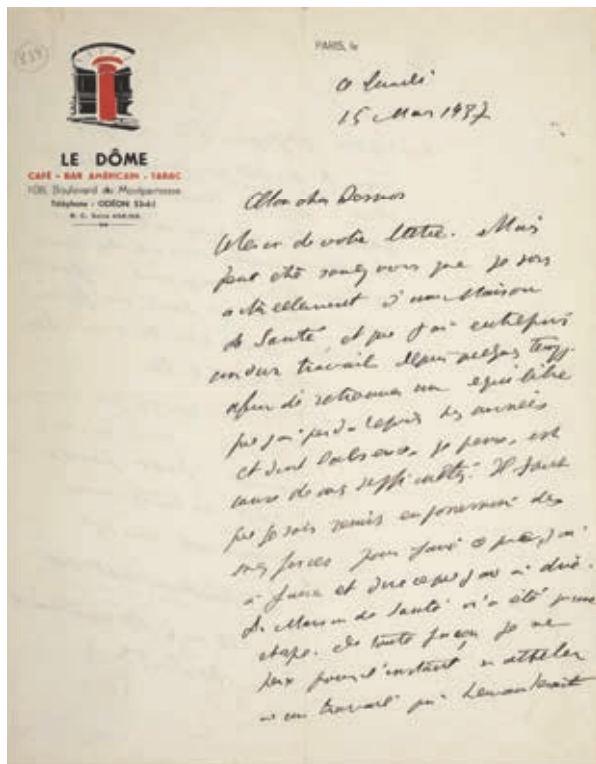 834
PARIS, le
ce Lundi
15 Mars 1937
LE DÔME
CAFÉ - BAR AMÉRICAIN - TABAC
108, Boulevard du Montparnasse
Téléphone : ODÉON 53-61
R. C. Seine
Mon cher Desnos
Merci de votre lettre. Mais
peut etre savez vous que je sors
actuellement d'une Maison
de Santé et que j'ai entrepris
un dur travail depuis quelque temps
afin de retrouver un equilibre
que j'ai perdu depuis des années
et dont l'absence, je pense, est
cause de mes difficultés. Il faut
que je sois remis en possession de
mes forces pour faire ce que j'ai
à faire et dire ce que j'ai à dire.
La Maison de Santé n'a été qu'une
étape. De toute façon je ne
peux pour l'instant m'atteler
à un travail qui demanderait